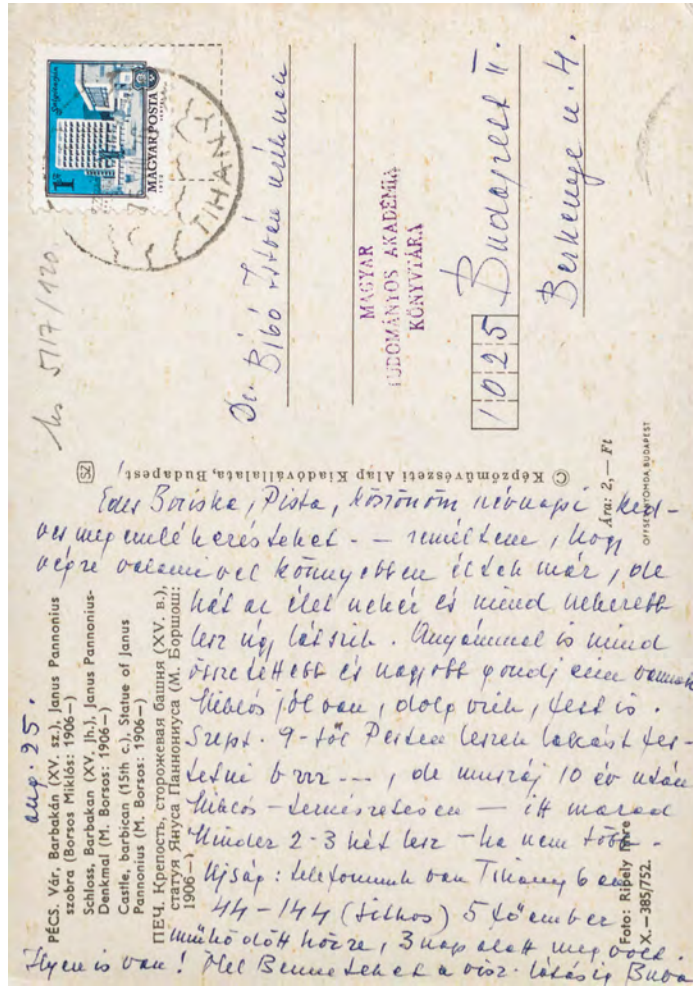 1 Ft
MAGYAR POSTA
TIHANY
Ms 5117/120.
Dr. Bibó István uéknak
MAGYAR
TUDOMÁNYOS AKADÉMIA
KÖNYVTÁRA
1025 Budapest II.
Berkenye u. 4.
© Képzőművészeti Alap Kiadóvállalata, Budapest
Ára: 2,— Ft
OFFSETNYOMDA, BUDAPEST
aug. 25.
PÉCS. Vár, Barbakán (XV. sz.), Janus Pannonius
szobra (Borsos Miklós: 1906—)
Schloss, Barbakan (XV. Jh.), Janus Pannonius-
Denkmal (M. Borsos: 1906—)
Castle, barbican (15th c.), Statue of Janus
Pannonius (M. Borsos: 1906—)
ПЕЧ. Крепость, сторожевая башня (XV. в.),
статуя Януса Паннониуса (М. Боршош:
1906—)
Foto: Ripely Imre
X.—385/752.
Édes Boriska, Pista, köszönöm névnapi ked-
ves megemlékezésteket -- reméltem, hogy
végre valamivel könnyebben éltek már, de
hát az élet nehéz és mind nehezebb
lesz úgy látszik. Anyámmal is mind
összetettebb és nagyobb gondjaim vannak
Miklós jól van, dolgozik, fest is.
Szept. 9-től Pesten leszek lakást fes-
tetni brrr ---, de muszáj 10 év után
Miklós - természetesen - itt marad
Minden 2-3 hét lesz - ha nem több -
Ujság: telefonunk van Tihanyban
44-144 (titkos) 5 főember
működött közre, 3 nap alatt meg volt.
Ilyen is van! Ölel Benneteket a visz. látásig Buba